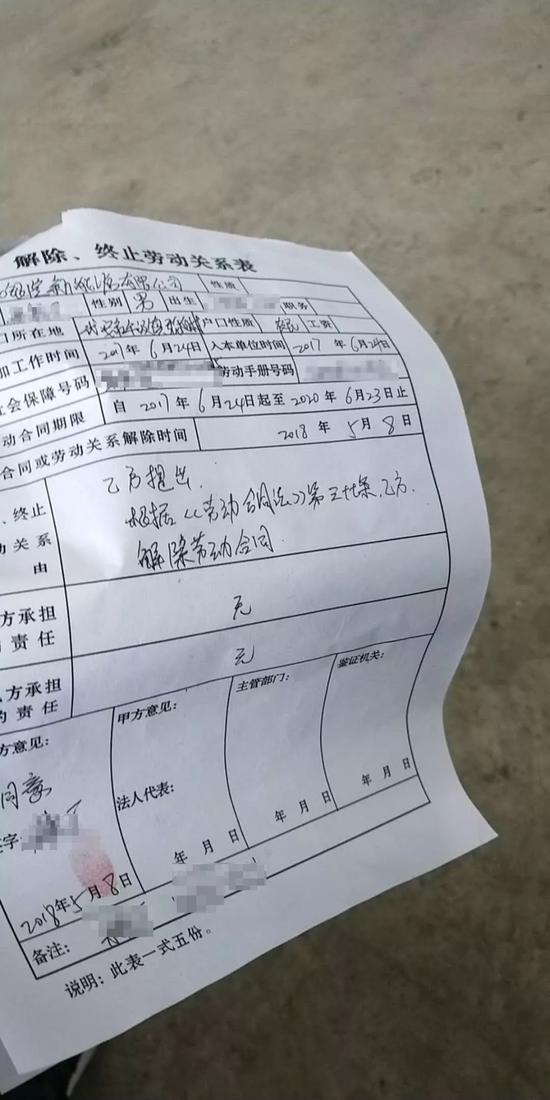 解除、终止劳动关系表
有限公司 性质
性别 男 出生 职务
口所在地 户口性质 农民 工资
加工作时间 2017年6月24日 入本单位时间 2017年6月24日
会保障号码 劳动手册号码
动合同期限 自2017年6月24日起至2020年6月23日止
合同或劳动关系解除时间 2018年5月8日
、终止
动关系
由
乙方提出.
根据《劳动合同法》第三十七条,乙方
解除劳动合同
方承担
责任
无
方承担
的责任
无
方意见:
同意
签字:
2018年5月8日
甲方意见:
法人代表:
年 月 日
主管部门:
年 月 日
鉴证机关:
年 月 日
备注:
说明:此表一式五份。